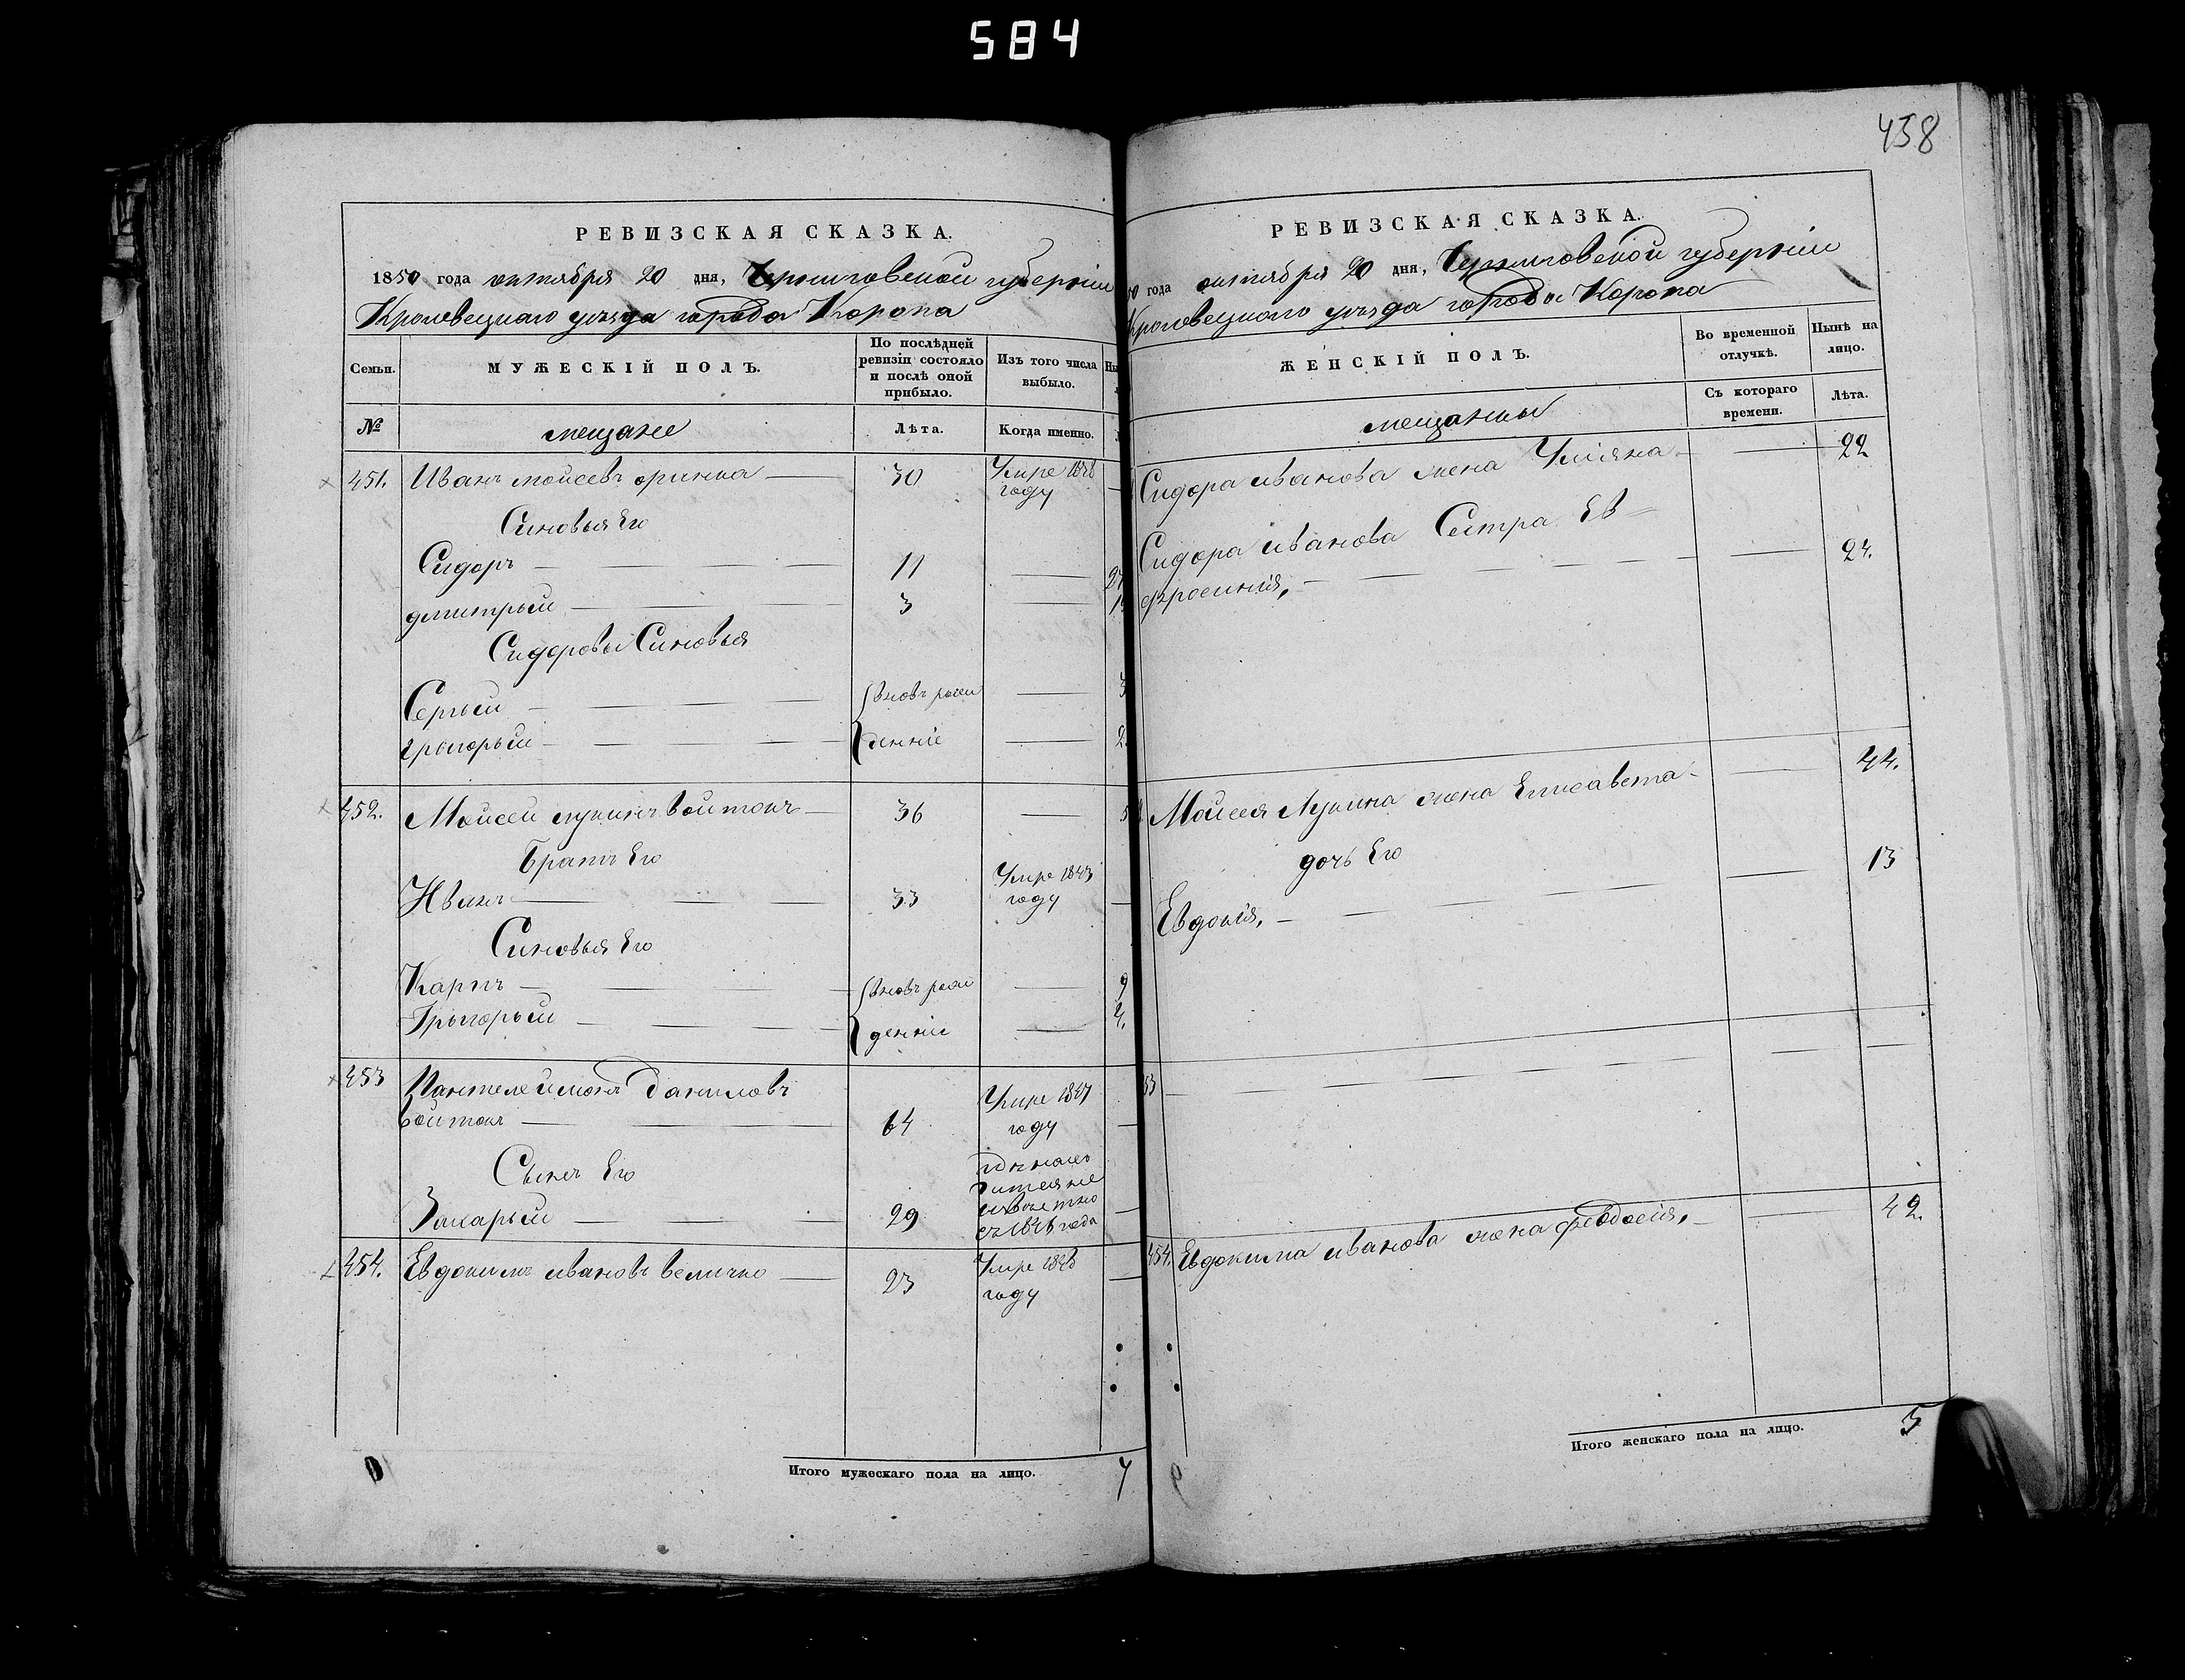 584
458
РЕВИЗСКАЯ СКАЗКА.
1850 года октября 20 дня, Черниговской губерніи
Кролевецкаго уѣзда города Коропа
Семьи.
МУЖЕСКІЙ ПОЛЪ.
По послѣдней ревизіи состояло и послѣ оной прибыло.
Изъ того числа выбыло.
№
мещане
Лѣта.
Когда именно.
451. Иванъ моисеевъ 30 Умре 1848 году
Синовья Его
Сидоръ 11
дмитрый 3
Сидоровы Синовья
Сергый вновь рож 3
григорый денніе 2
452. Моисей лукинъ войтокъ 36
Братъ Его
Иванъ 33 Умре 1843 году
Синовья Его
Карпъ вновь рож 9
Григорый денніе 4.
453 Пантелеймонъ Даниловъ
войтокъ 64 Умре 1847 году
Сынъ Его
Захарый 29
454. Евдокимъ ивановъ величко 23 Умре 1848 году
Итого мужескаго пола на лицо. 7
РЕВИЗСКАЯ СКАЗКА.
50 года октября 20 дня, Черниговской губерніи
Кролевецкаго уѣзда города Коропа
ЖЕНСКІЙ ПОЛЪ.
Во временной отлучкѣ.
Нынѣ на лицо.
мещанки
Съ котораго времени.
Лѣта.
Сидора иванова жена Уліяна 22
Сидора иванова Сестра Ев
фросинія, 24.
Моисея Лукина жена Елисавета 44.
дочь Его
Евдокія, 13
53
454. Евдокима иванова жена феодосія, 42.
Итого женскаго пола на лицо. 5